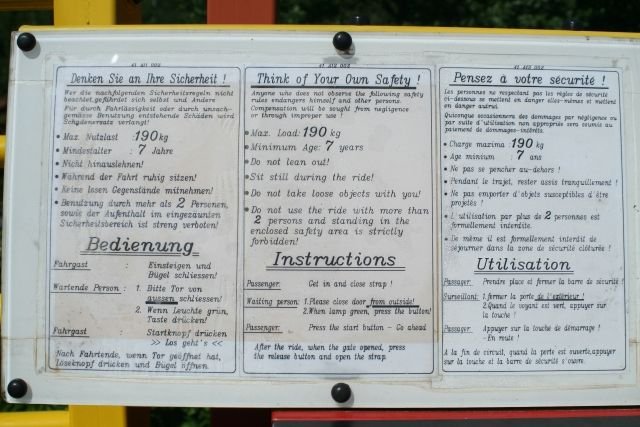 41 411 002
Denken Sie an Ihre Sicherheit !
Wer die nachfolgenden Sicherheitsregeln nicht
beachtet,gefährdet sich selbst und Andere
Für durch Fahrlässigkeit oder durch unsach-
gemässe Benutzung entstehende Schäden wird
Schadenersatz verlangt!
• Max. Nutzlast :190kg
• Mindestalter : 7 Jahre
• Nicht hinauslehnen!
• Während der Fahrt ruhig sitzen!
• Keine losen Gegenstände mitnehmen!
• Benutzung durch mehr als 2 Personen,
sowie der Aufenthalt im eingezäunten
Sicherheitsbereich ist streng verboten!
Bedienung
Fahrgast : Einsteigen und
Bügel schliessen!
Wartende Person : 1. Bitte Tor von
aussen schliessen!
2. Wenn Leuchte grün,
Taste drücken!
Fahrgast : Startknopf drücken
>> los geht's <<
Nach Fahrtende, wenn Tor geöffnet hat,
Löseknopf drücken und Bügel öffnen.
41 412 002
Think of Your Own Safety !
Anyone who does not observe the following safety
rules endangers himself and other persons.
Compensation will be sought from negligence
or through improper use !
• Max. Load: 190 kg
• Minimum Age: 7 years
• Do not lean out!
• Sit still during the ride!
• Do not take loose objects with you!
• Do not use the ride with more than
2 persons and standing in the
enclosed safety area is strictly
forbidden!
Instructions
Passenger: Get in and close strap !
Waiting person: 1.Please close door from outside!
2.When lamp green, press the button!
Passenger: Press the start button - Go ahead
After the ride, when the gate opened, press
the release button and open the strap.
41 413 002
Pensez à votre sécurité !
Les personnes ne respectant pas les règles de sécurité
ci-dessous se mettent en danger elles-mêmes et mettent
en danger autrui.
Quiconque occasionnera des dommages par négligence ou
par suite d'utilisation non appropriée sera soumis au
paiement de dommages-intérêts.
• Charge maxima :190 kg
• Age minium : 7 ans
• Ne pas se pencher au-dehors !
• Pendant le trajet, rester assis tranquillement !
• Ne pas emporter d'objets susceptibles d'être
projetés !
• L'utilisation par plus de 2 personnes est
formellement interdite.
• De même il est formellement interdit de
séjourner dans la zone de sécurité clôturée !
Utilisation
Passager: Prendre place et fermer la barre de sécurité
Surveillant: 1.fermer la porte de l'extérieur!
2.Quand le voyant est vert, appuyer sur
la touche !
Passager: Appuyer sur la touche de démarrage !
-En route !
A la fin de circuit, quand la porte est ouverte,appuyer
sur la touche et la barre de sécurité s'ouvre.